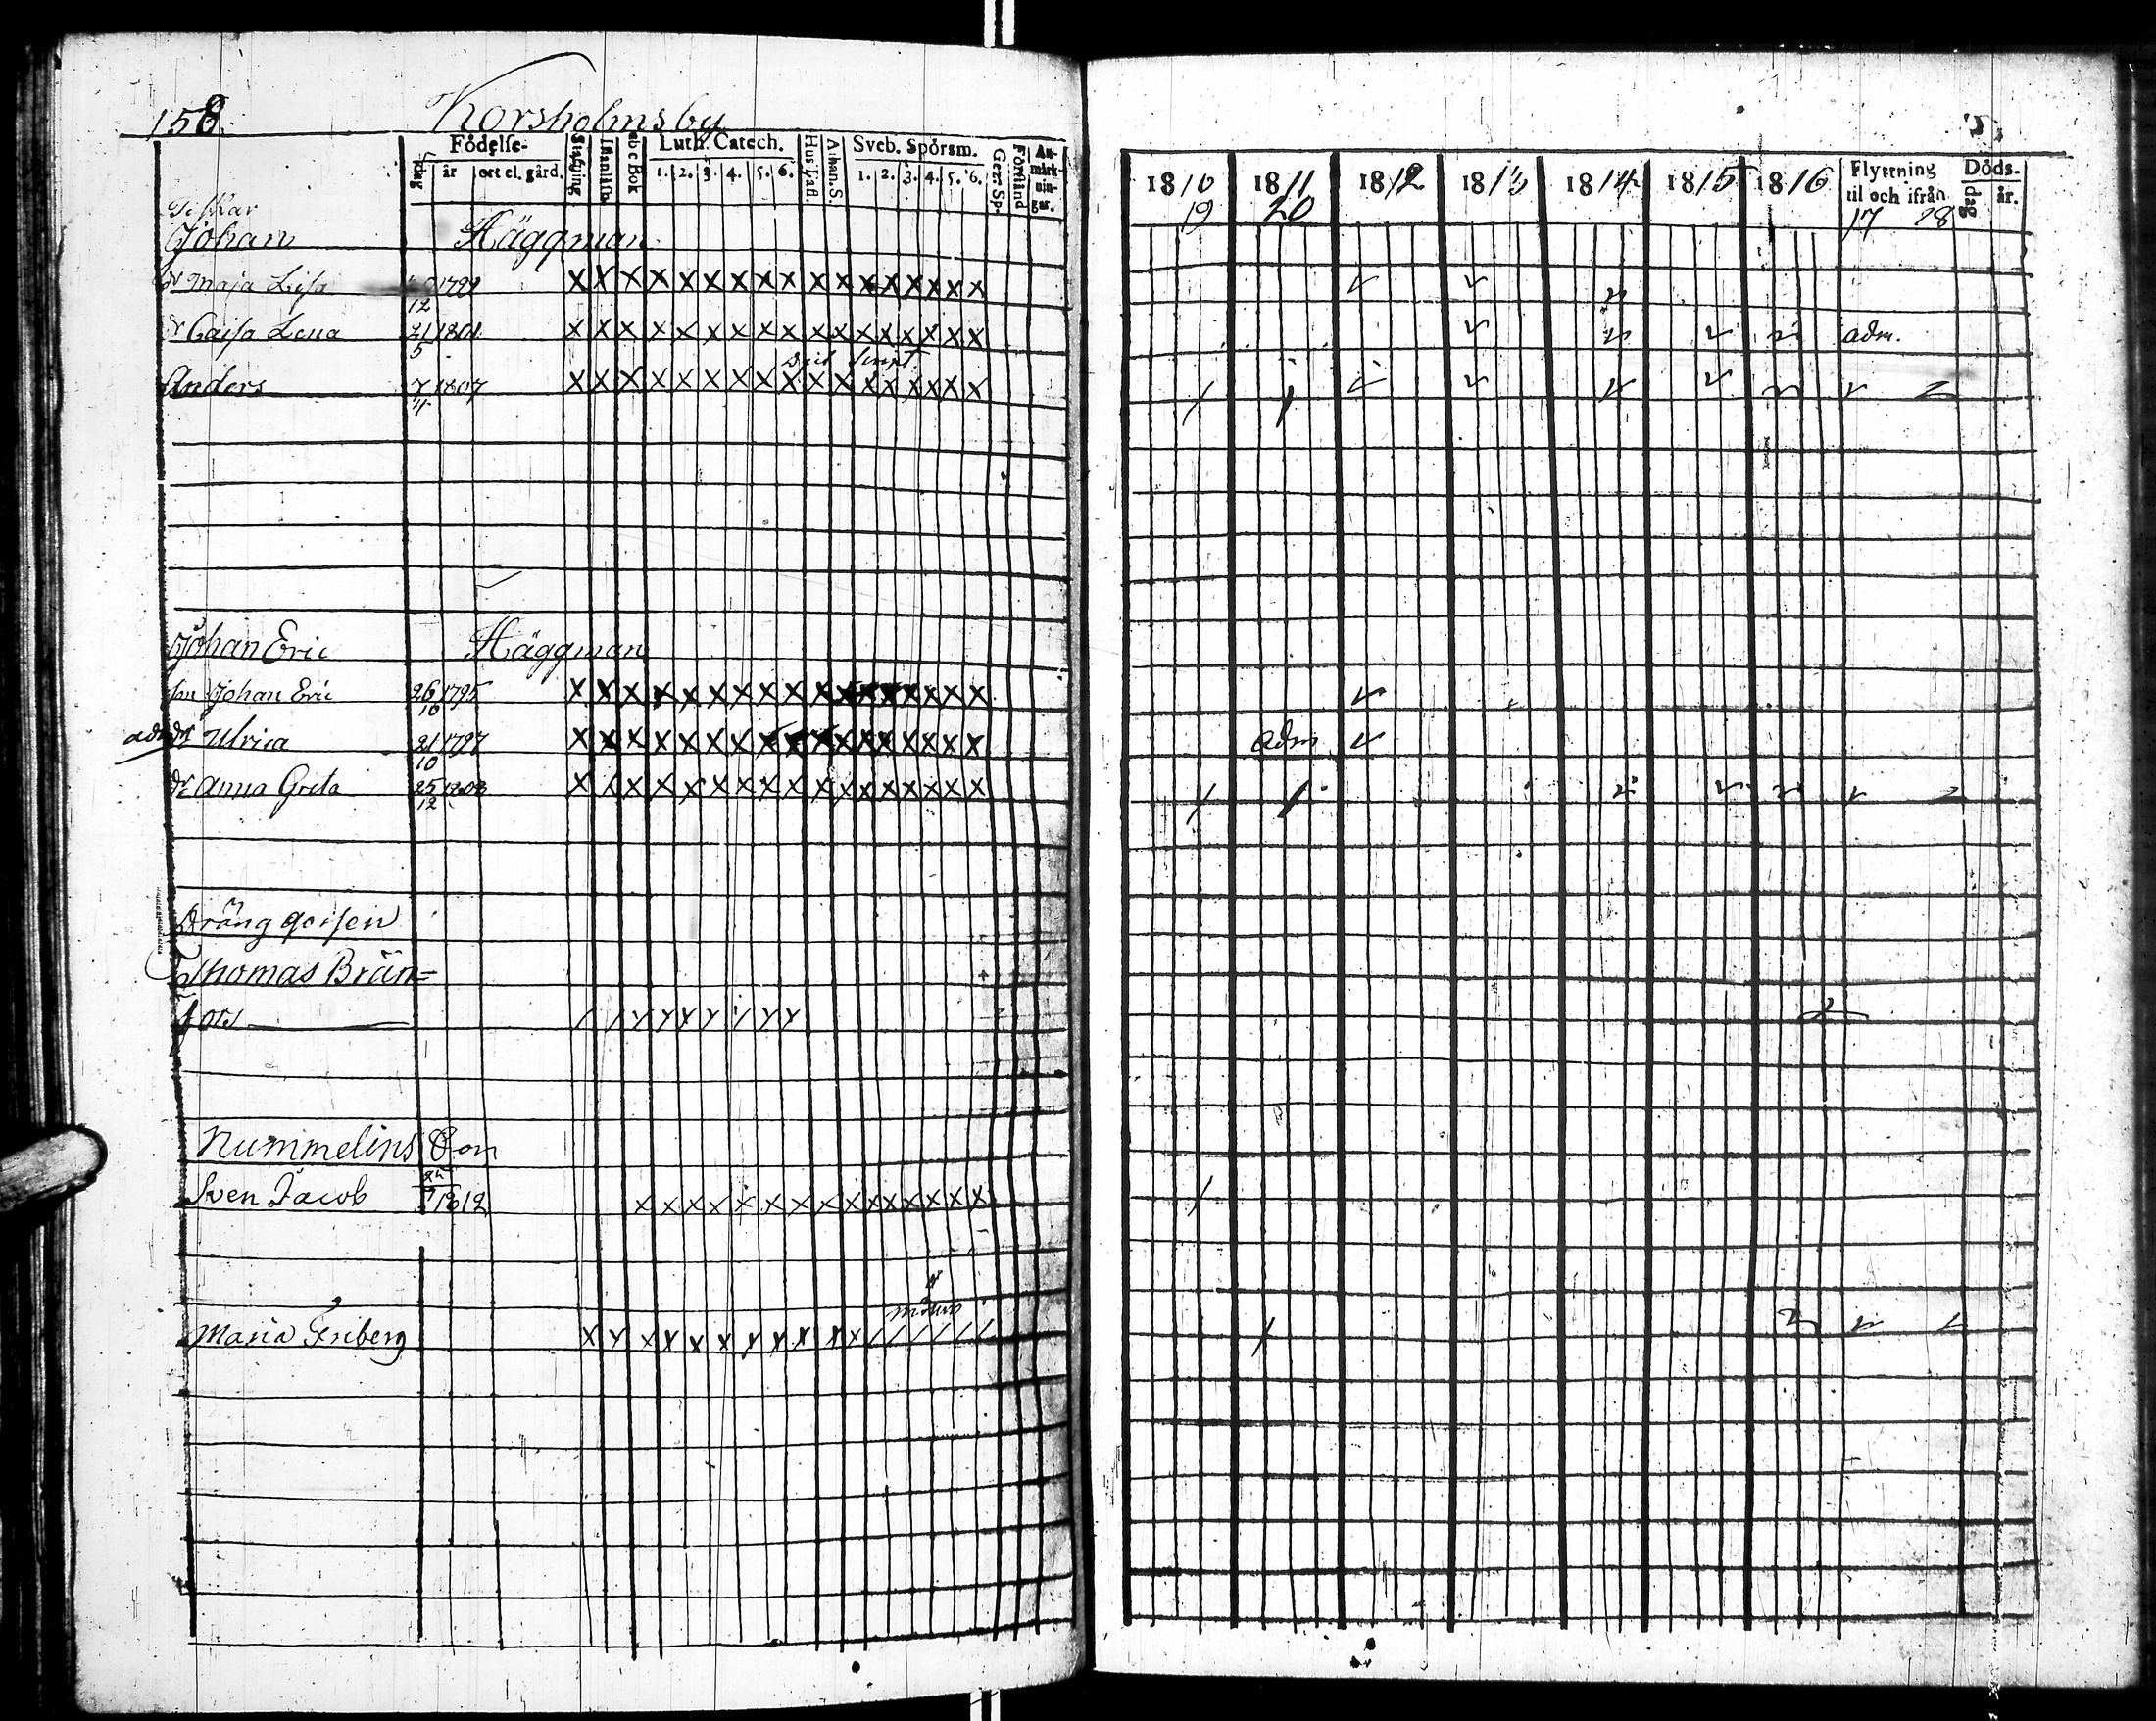 158. Korsholmsby
Födelse- Stafning Innanläsn. Abc Bok Luth. Catech. Hus Tafl. Athan. S. Sveb. Spörsm. Gezz Sp. Förstånd An-märk-nin-gar.
dag år ort el. gård. 1. 2. 3. 4. 5. 6. 1. 2. 3. 4. 5. 6.
Fiskar
Johan Häggman
dr Maja Lisa 12 1799 x x x x x x x x x x x x x x x x x
dr Caisa Lena 21/5 1801 x x x x x x x x x x x x x x x x x
Anders 7/4 1807 x x x x x x x x x x x x x x x x x
Johan Eric Häggman
son Johan Eric 26/10 1795 x x x x x x x x x x x x x x x x x
dr Ulrica 21/10 1797 x x x x x x x x x x x x x x x x x
dr Anna Greta 25/12 1803 x x x x x x x x x x x x x x x x x
Dräng gossen
Thomas Brän=
fors
Nummelins Son
Sven Jacob 1812 x x x x x x x x x x x x x x x
Maria Friberg x x x x x x x x x x x / / / / / /
1810 1811 1812 1813 1814 1815 1816 Flyttning til och ifrån Döds-
19 20 17 18 dag år.
adm.
adm